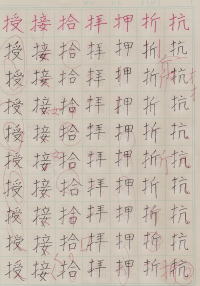 授接拾拝押折抗
授接拾拝押折抗
授接拾拝押折抗
授接拾拝押折抗
授接拾拝押折抗
授接拾拝押折抗
授接拾拝押折抗
授接拾拝押折抗
授接拾拝押折抗
授接拾拝押折抗